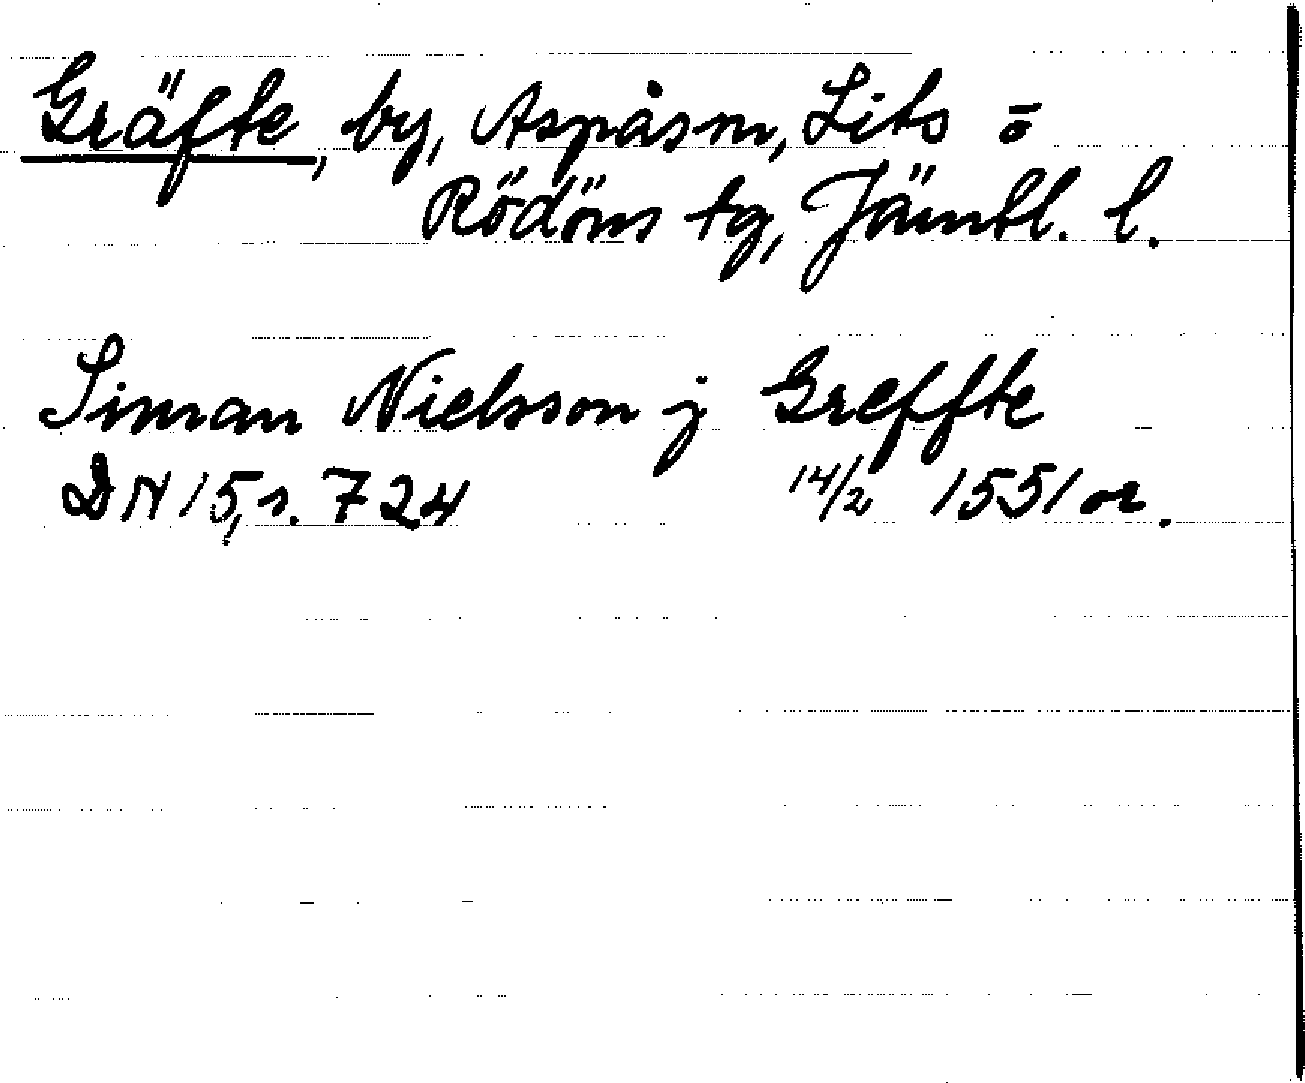 Gräfte, by, Aspås sn, Lits o
Rödöns tg, Jämtl. l.
Siman Nielsson j Greffte
DN 15, s. 724 14/2 1551 or.